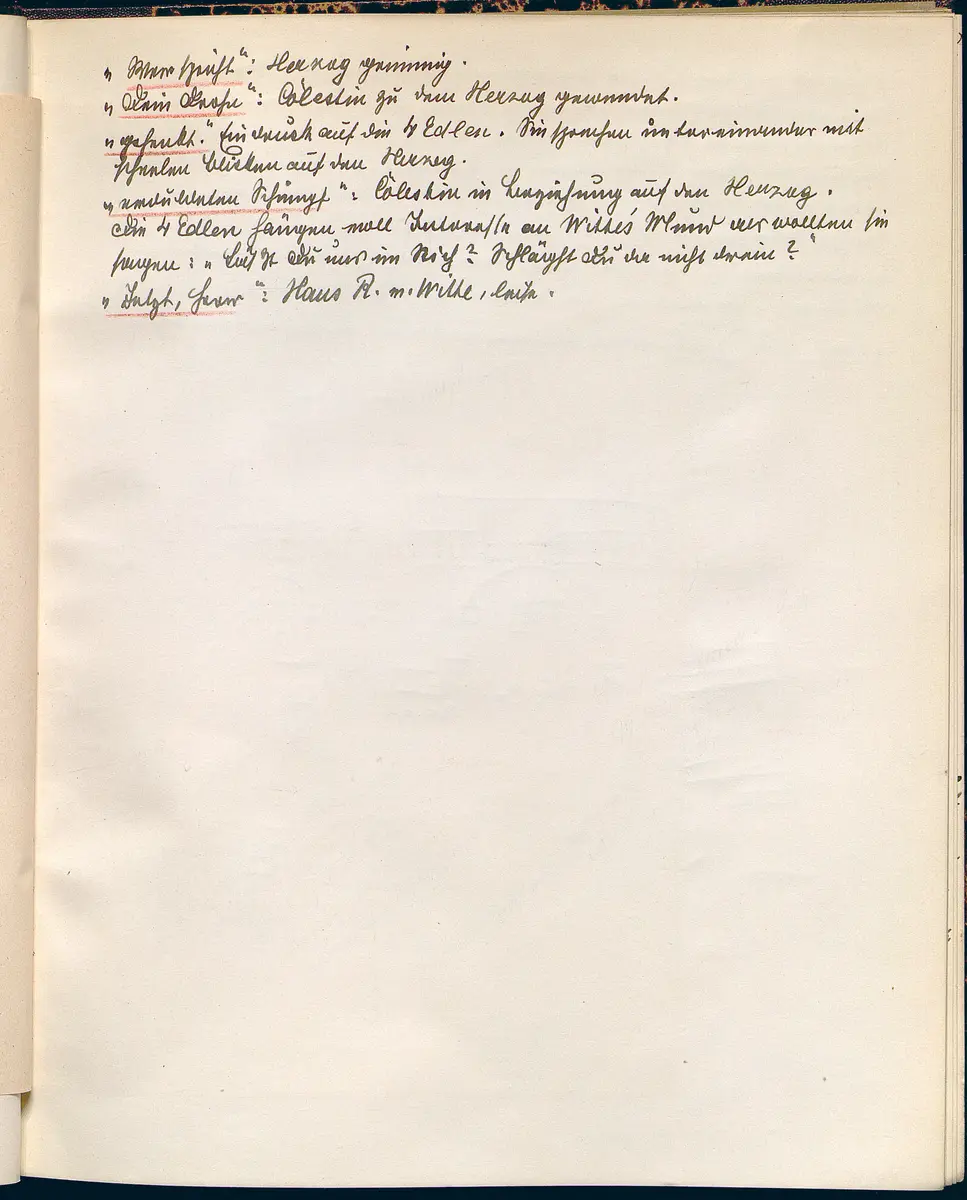 „Wer spricht“: Herzog grimmig.
„Dein Drohn“: Cölestin zu dem Herzog gewendet.
„gesenkt.“ Eindruck auf die 4 Edlen. Sie sprechen untereinander mit
scheelen Blicken auf den Herzog.
„erduldeten Schimpf“: Cölestin in Beziehung auf den Herzog.
Die 4 Edlen hängen voll Interesse an Witte's Mund als wollten sie
sagen: „Läßt Du uns im Stich? Schlägst Du da nicht drein?“
„Jetzt, Herr“: Hans R. v. Witte, leise.